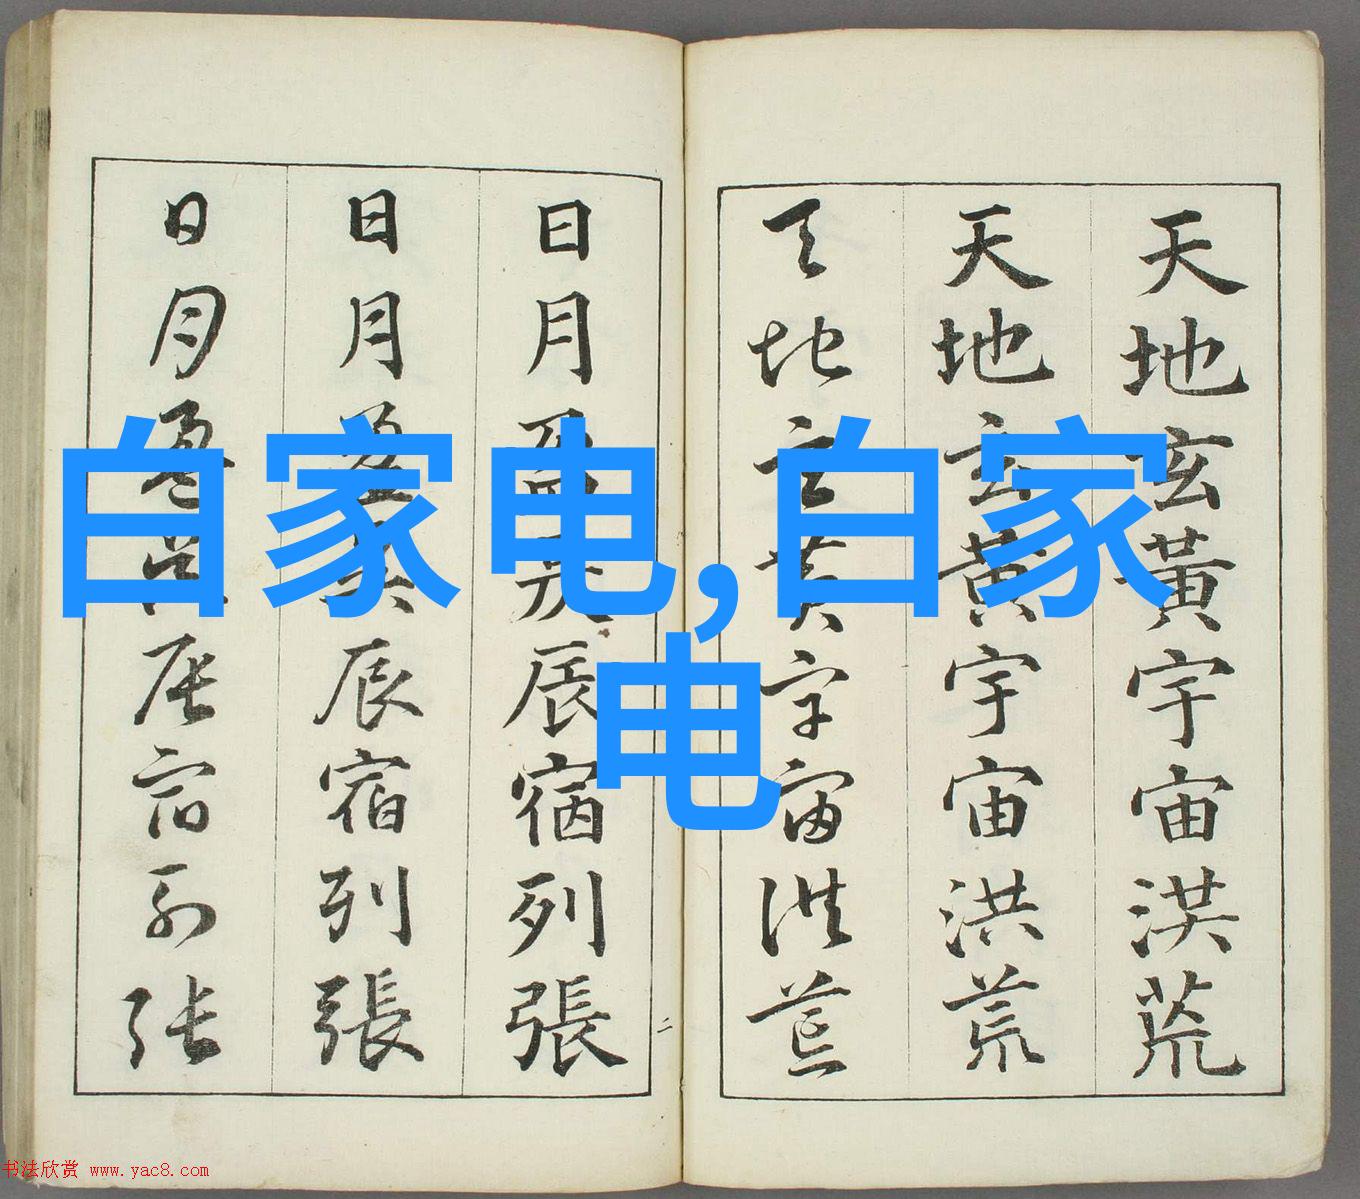 白家电,白家
电
天地玄黃宇宙洪荒
天地玄黃宇宙洪荒
天地玄黃宇宙洪荒
二
日月盈昃辰宿列張
日月盈昃辰宿列張
日月盈昃辰宿列張
书法欣赏 www.yac8.com